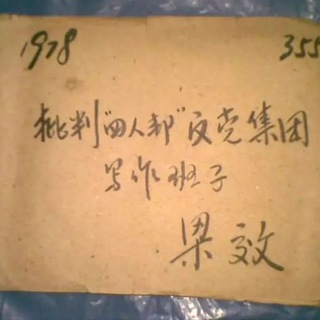 1978 355
批判"四人邦"反党集团
写作班子
梁效